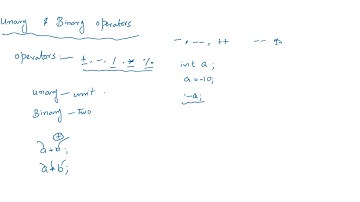 Unary & Binary operators
operators — +, -, /, *, %
Unary — unit
Binary — Two
+
a + b;
a * b;
-, --, ++ --
int a;
a = -10;
-a;